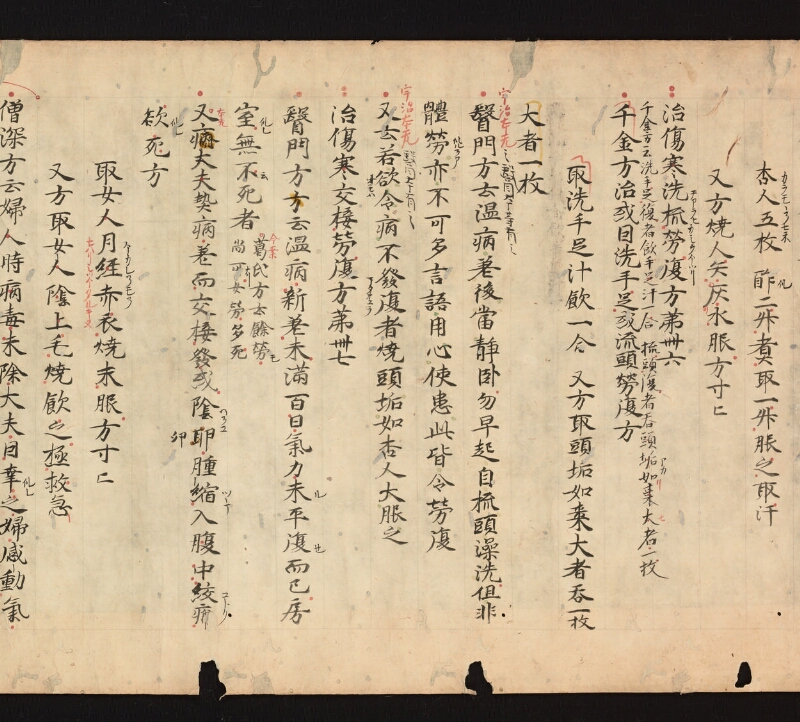 杏人五枚 酢二升煮取一升服之取汗
又方燒人矢灰水服方寸匕
治傷寒洗梳勞復方第卌六
千金方云洗手足復者飲手足汁一合 梳頭復者吞頭垢如棗大者一枚
千金方治或日洗手足或流頭勞復方
取洗手足汁飲一合 又方取頭垢如棗大者吞一枚
大者一枚
醫門方云溫病差後當靜卧勿早起自梳頭澡洗但非
體勞亦不可多言語用心使患此皆令勞復
又云若欲令病不發復者燒頭垢如杏人大服之
治傷寒交接勞復方第卌七
醫門方方云溫病新差未滿百日氣力未平復而已房
室無不死者
葛氏方云餘勞
尚可女勞多死
又病丈夫熱病差而交接發或陰卵腫縮入腹中絞痛
卵
欲死方
取女人月經赤衣燒末服方寸匕
又方取女人陰上毛燒飲之極救急
僧深方云婦人時病毒未除丈夫因幸之婦感動氣